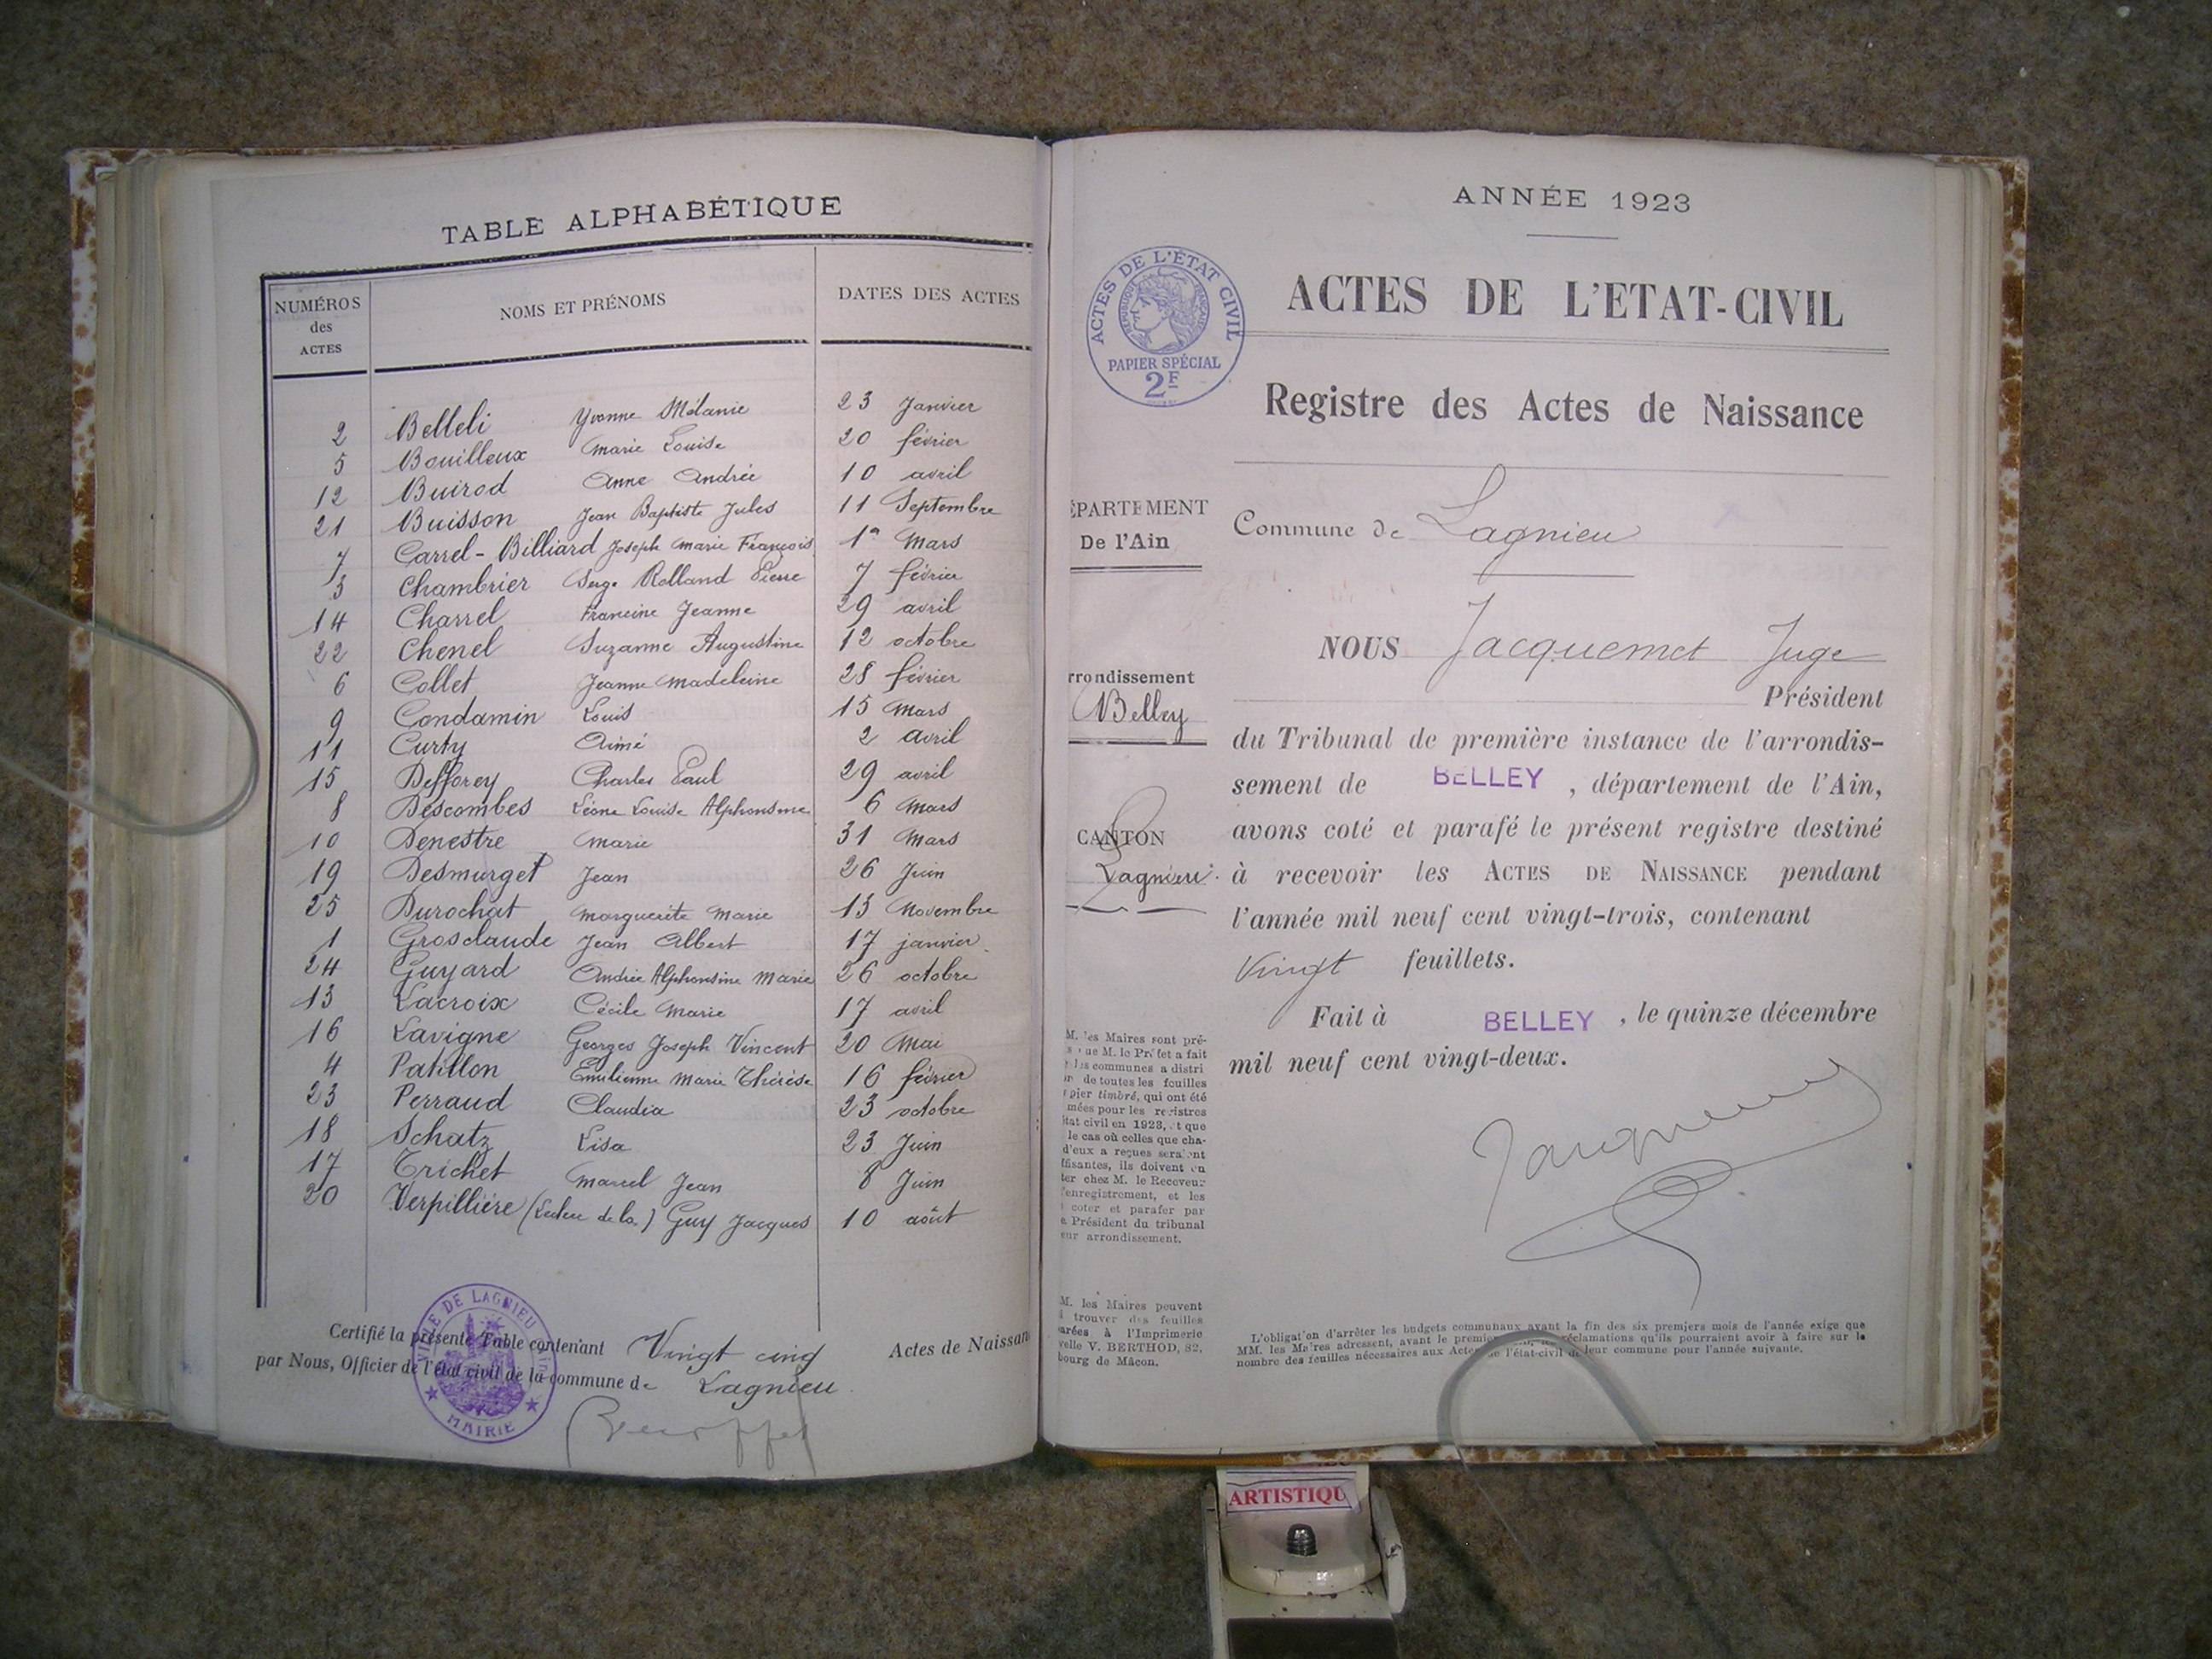 TABLE ALPHABÉTIQUE
NUMÉROS des ACTES NOMS ET PRÉNOMS DATES DES ACTES
2 Belleli Yvonne Mélanie 23 Janvier
5 Bouilleux Marie Louise 20 février
12 Buirod Anne Andrée 10 avril
21 Buisson Jean Baptiste Jules 11 Septembre
7 Carrel-Billiard Joseph Marie François 1er Mars
3 Chambrier Serge Rolland Pierre 7 février
14 Charrel Francine Jeanne 29 avril
22 Chenel Suzanne Augustine 12 octobre
6 Collet Jeanne Madeleine 28 février
9 Condamin Louis 15 Mars
11 Curty Aimé 2 avril
15 Defforey Charles Paul 29 avril
8 Descombes Léone Louise Alphonsine 6 Mars
10 Denestre Marie 31 Mars
19 Desmurget Jean 26 Juin
25 Durochat Marguerite Marie 13 Novembre
1 Grosclaude Jean Albert 17 janvier
24 Guyard Andrée Alphonsine Marie 26 octobre
13 Lacroix Cécile Marie 17 avril
16 Lavigne Georges Joseph Vincent 20 Mai
4 Patillon Emilienne Marie Thérèse 16 février
23 Perraud Claudia 23 octobre
18 Schatz Lisa 23 Juin
17 Trichet Marcel Jean 8 Juin
20 Verpillière (Leclerc de la) Guy Jacques 10 août
Certifié la présente Table contenant Vingt cinq Actes de Naissan
par Nous, Officier de l'état civil de la commune de Lagnieu
VILLE DE LAGNIEU
MAIRIE
ANNÉE 1923
ACTES DE L'ÉTAT CIVIL
RÉPUBLIQUE FRANÇAISE
PAPIER SPÉCIAL
2F
ACTES DE L'ETAT-CIVIL
Registre des Actes de Naissance
ÉPARTEMENT
De l'Ain
Commune de Lagnieu
rrondissement
Belley
NOUS Jacquemet Juge
Président
du Tribunal de première instance de l'arrondis-
sement de BELLEY, département de l'Ain,
CANTON
Lagnieu
avons coté et parafé le présent registre destiné
à recevoir les ACTES DE NAISSANCE pendant
l'année mil neuf cent vingt-trois, contenant
Vingt feuillets.
Fait à BELLEY, le quinze décembre
mil neuf cent vingt-deux.
M. les Maires sont pré-
que M. le Préfet a fait
les communes a distri
de toutes les fouilles
pier timbré, qui ont été
mées pour les registres
état civil en 1923, et que
le cas où celles que cha-
d'eux a reçues seraient
ffisantes, ils doivent en
ter chez M. le Receveur
l'enregistrement, et les
coter et parafer par
e Président du tribunal
eur arrondissement.
M. les Maires peuvent
trouver des feuilles
arées à l'Imprimerie
velle V. BERTHOD, 82,
bourg de Mâcon.
L'obligation d'arrêter les budgets communaux avant la fin des six premiers mois de l'année exige que
MM. les Maires adressent, avant le premier réclamations qu'ils pourraient avoir à faire sur le
nombre des feuilles nécessaires aux Actes de l'état-civil de leur commune pour l'année suivante.
ARTISTIQU